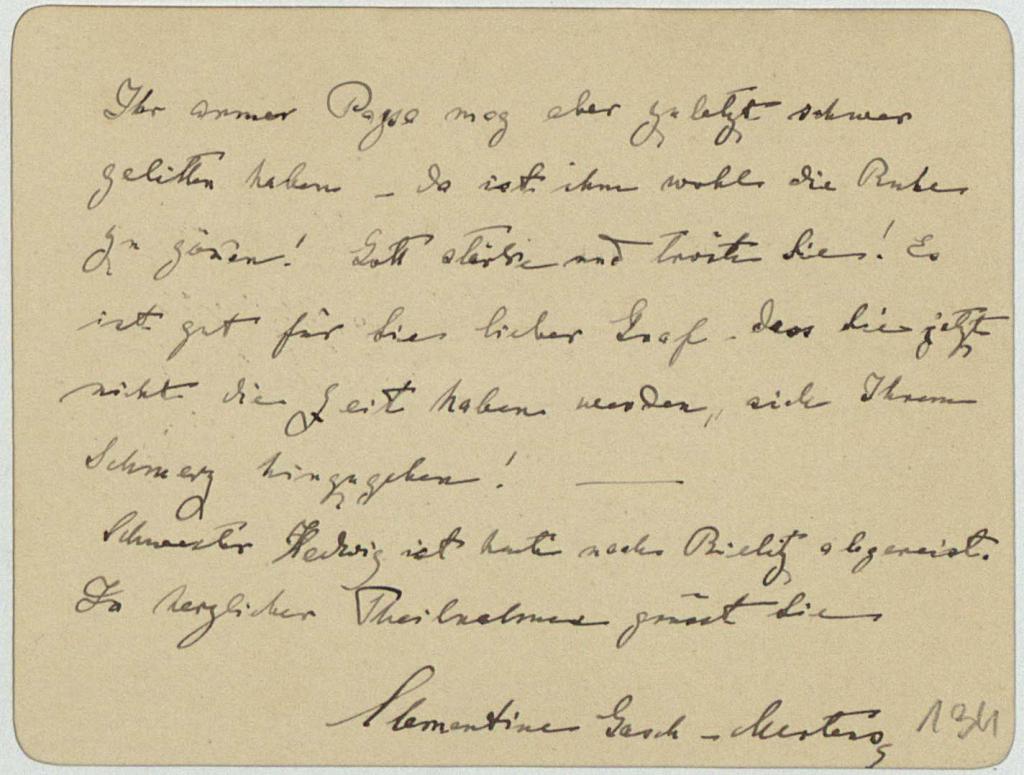 Ihr armer Papa mag aber zuletzt schwer
gelitten haben – da ist ihm wohl die Ruhe
zu gönen! Gott stärke und tröste Sie! Es
ist gut für Sie lieber Graf – dass Sie jetzt
nicht die Zeit haben werden, sich Ihrem
Schmerz hinzugeben! —
Schwester Hedwig ist heute nach Bielitz abgereist.
In herzlicher Theilnahme grüsst Sie
Clementine Gasch – Mertens
134